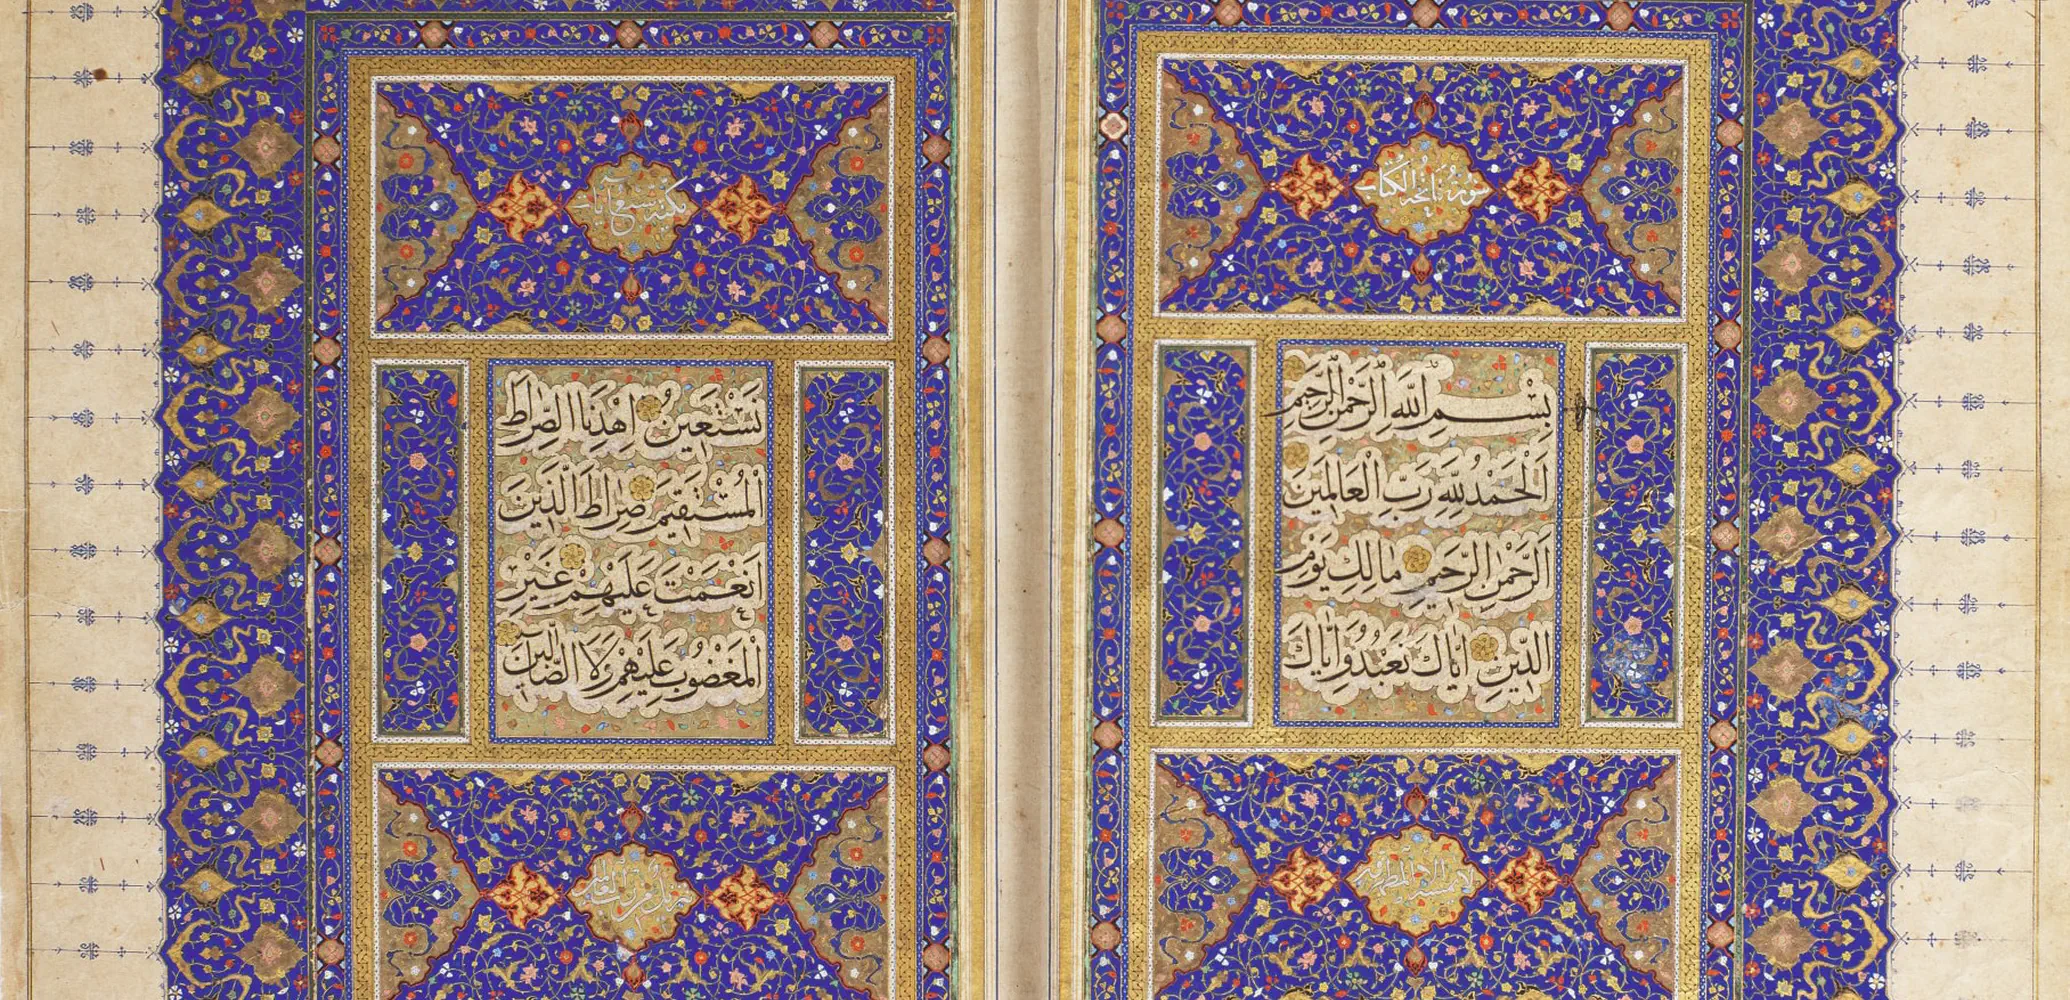 سورة فاتحة الكتاب
بِسْمِ اللَّهِ الرَّحْمٰنِ الرَّحِيمِ
اَلْحَمْدُ لِلَّهِ رَبِّ الْعَالَمِينَ
اَلرَّحْمٰنِ الرَّحِيمِ مَالِكِ يَوْمِ
الدِّينِ اِيَّاكَ نَعْبُدُ وَاِيَّاكَ
لا يمسه الا المطهرون
مكية سبع آيات
نَسْتَعِينُ اِهْدِنَا الصِّرَاطَ
الْمُسْتَقِيمَ صِرَاطَ الَّذِينَ
اَنْعَمْتَ عَلَيْهِمْ غَيْرِ
الْمَغْضُوبِ عَلَيْهِمْ وَلَا الضَّالِّينَ
تنزيل من رب العالمين